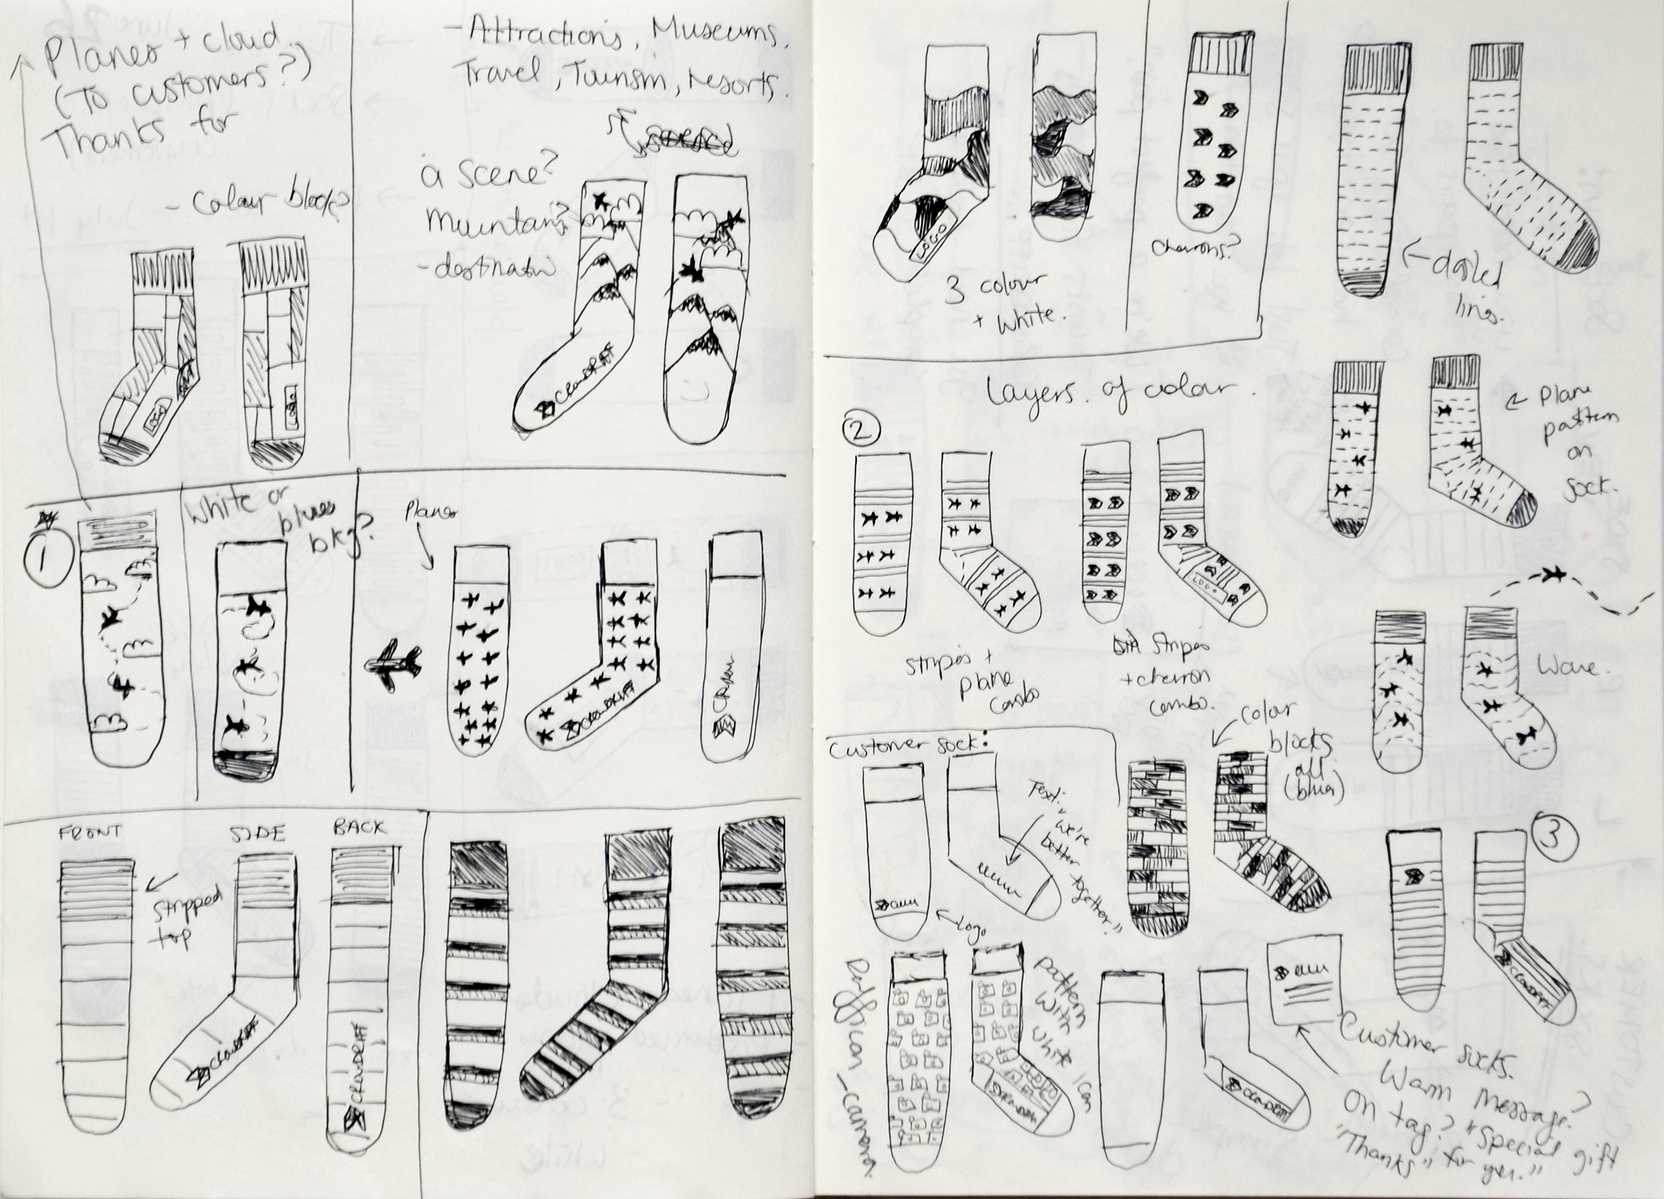 Planes + cloud.
(To customers?)
Thanks for
- Colour block?
LOGO
LOGO
- Attractions, Museums,
Travel, Tourism, resorts.
a scene?
mountains?
- destinatin
CROWDRIFF
1
White or
blues
bkg?
Planes
CROWDRIFF
FRONT
SIDE
BACK
stripped
top
CROWDRIFF
CROWDRIFF
LOGO
3 colour
+ white.
chevrons?
dashed
lines.
Layers of colour.
2
LOGO
stripes +
plane
combo
Stripes
+ chevron
combo.
Plane
pattern
on
sock.
Wave.
Customer sock:
Text:
"we're
better
together."
Logo
Color
blocks
all
(blue)
3
CROWDRIFF
Pufficon - camera.
pattern
with
white icon
CROWDRIFF
CROWDRIFF
Customer socks.
Warm message?
On tag? *Special gift
"Thanks" for you."